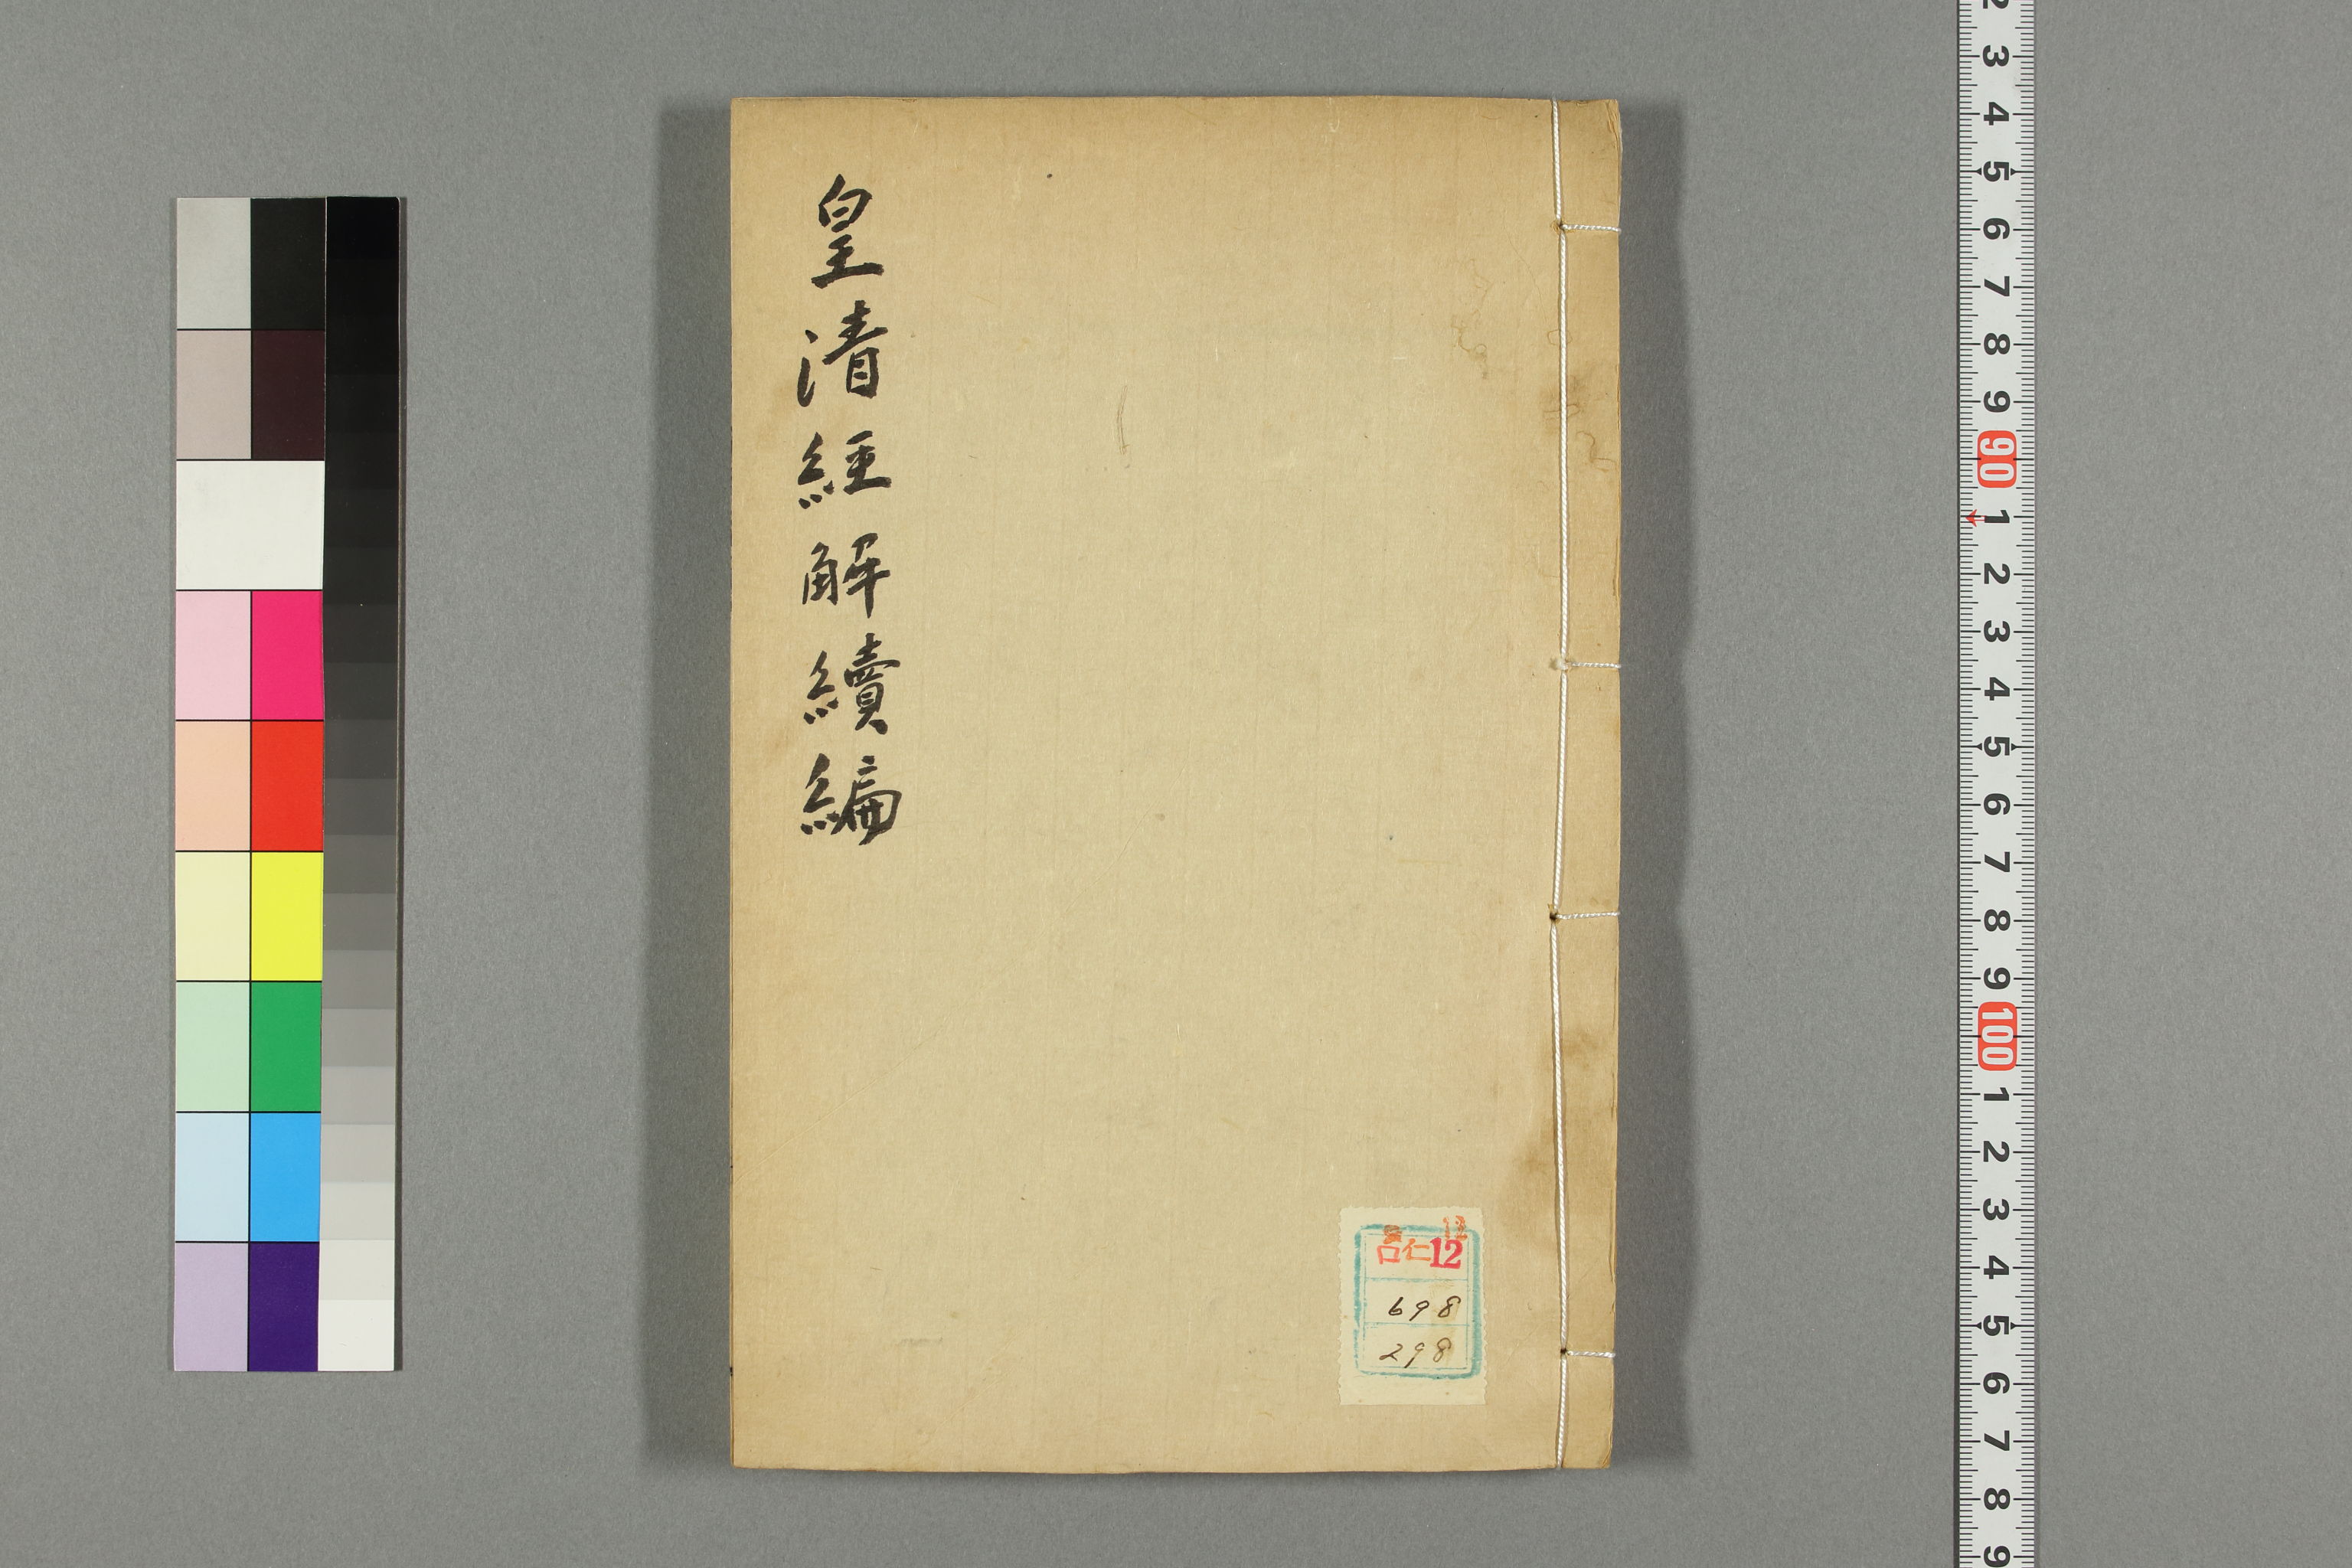 皇清經解續編
12
口仁12
698
298
2
3
4
5
6
7
8
9
90
1
2
3
4
5
6
7
8
9
100
1
2
3
4
5
6
7
8
9